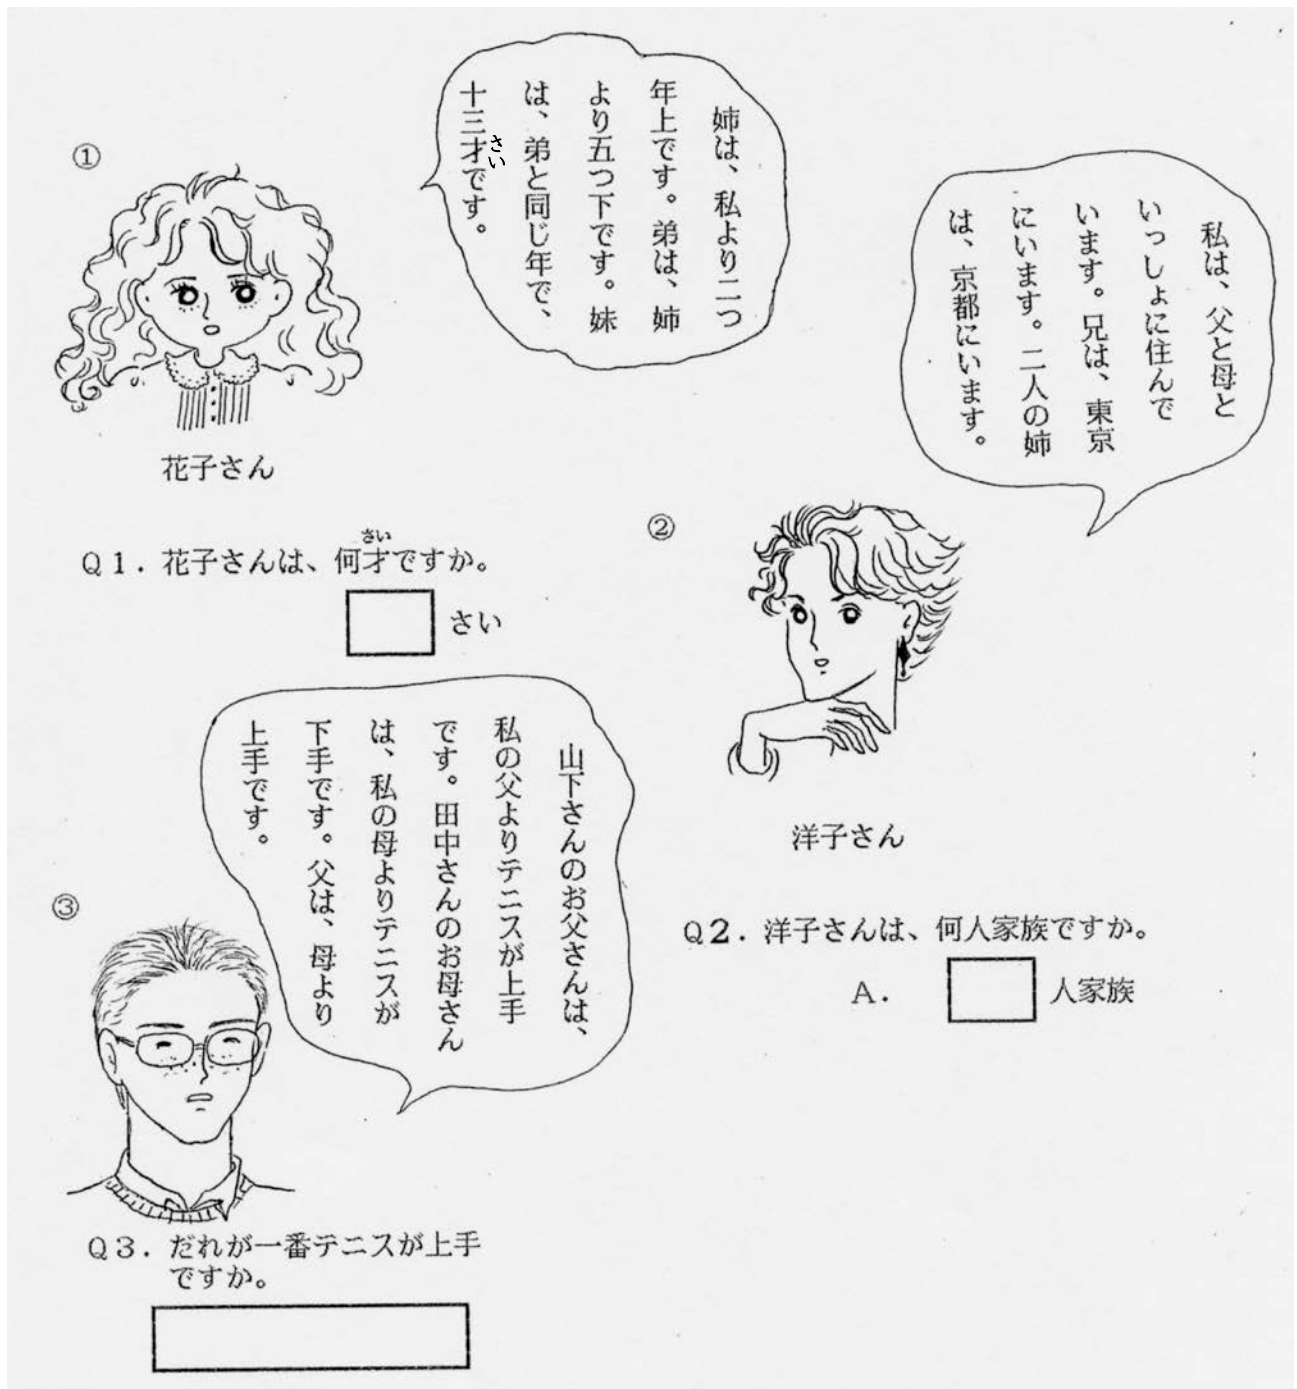 ①
姉は、私より二つ
年上です。弟は、姉
より五つ下です。妹
は、弟と同じ年で、
十三才です。
さい
花子さん
Q1．花子さんは、何才ですか。
さい
さい
私は、父と母と
いっしょに住んで
います。兄は、東京
にいます。二人の姉
は、京都にいます。
②
洋子さん
Q2．洋子さんは、何人家族ですか。
A． 人家族
③
山下さんのお父さんは、
私の父よりテニスが上手
です。田中さんのお母さん
は、私の母よりテニスが
下手です。父は、母より
上手です。
Q3．だれが一番テニスが上手
ですか。